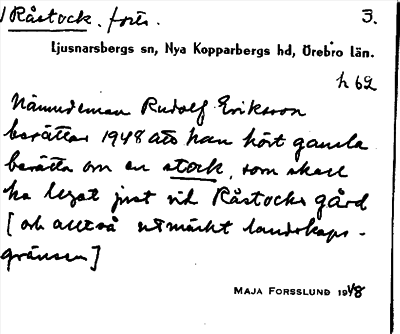 Råstock. forts. 3.
Ljusnarsbergs sn, Nya Kopparbergs hd, Örebro län.
h 62
Nämndeman Rudolf Eriksson
berättar 1948 att han hört gamla
berätta om en stock, som skall
ha legat just vid Råstocks gård
[och alltså utmärkt landskaps-
gränsen]
MAJA FORSSLUND 1948